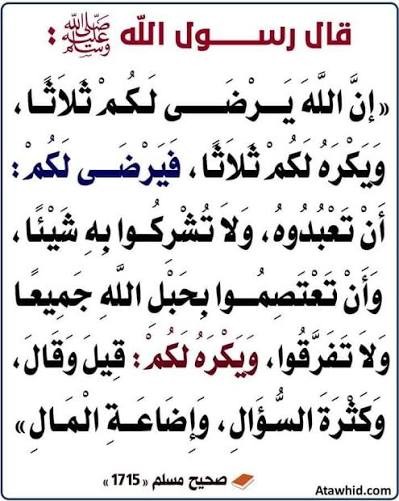 قال رســـول الله ﷺ :
«إنَّ اللَّهَ يَـرْضَـــى لَكُـمْ ثَلَاثًـا،
وَيَكْرَهُ لَكُمْ ثَلَاثًا، فَيَرْضَــى لَكُمْ:
أَنْ تَعْبُدُوهُ، وَلَا تُشْرِكُـوا بِهِ شَيْئًـا،
وَأَنْ تَعْتَصِمُــوا بِحَبْلِ اللَّهِ جَمِيعًا
وَلَا تَفَرَّقُوا، وَيَكْرَهُ لَكُمْ: قِيلَ وَقَالَ،
وَكَثْرَةَ السُّـؤَالِ، وَإِضَاعَـةِ الْمَـالِ»
صحيح مسلم « 1715 »
Atawhid.com